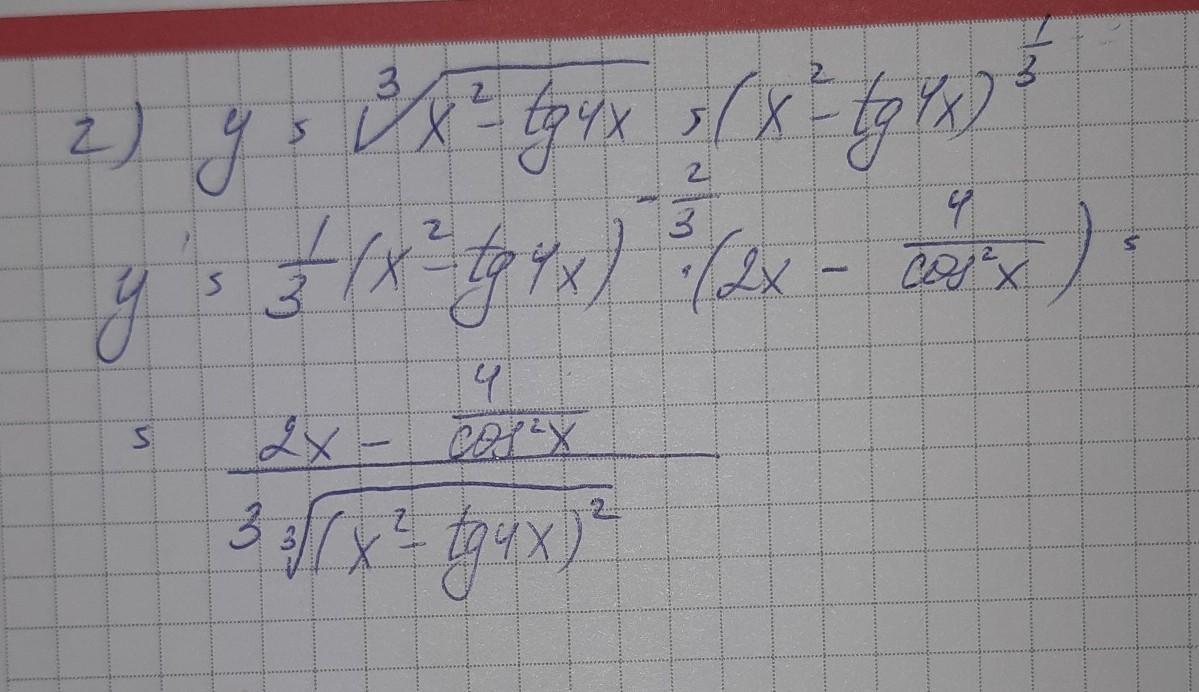 2) y = ∛(x² - tg4x) = (x² - tg4x)^(1/3)
y' = 1/3 (x² - tg4x)^(-2/3) · (2x - 4/cos²x) =
= (2x - 4/cos²x) / (3∛((x² - tg4x)²))